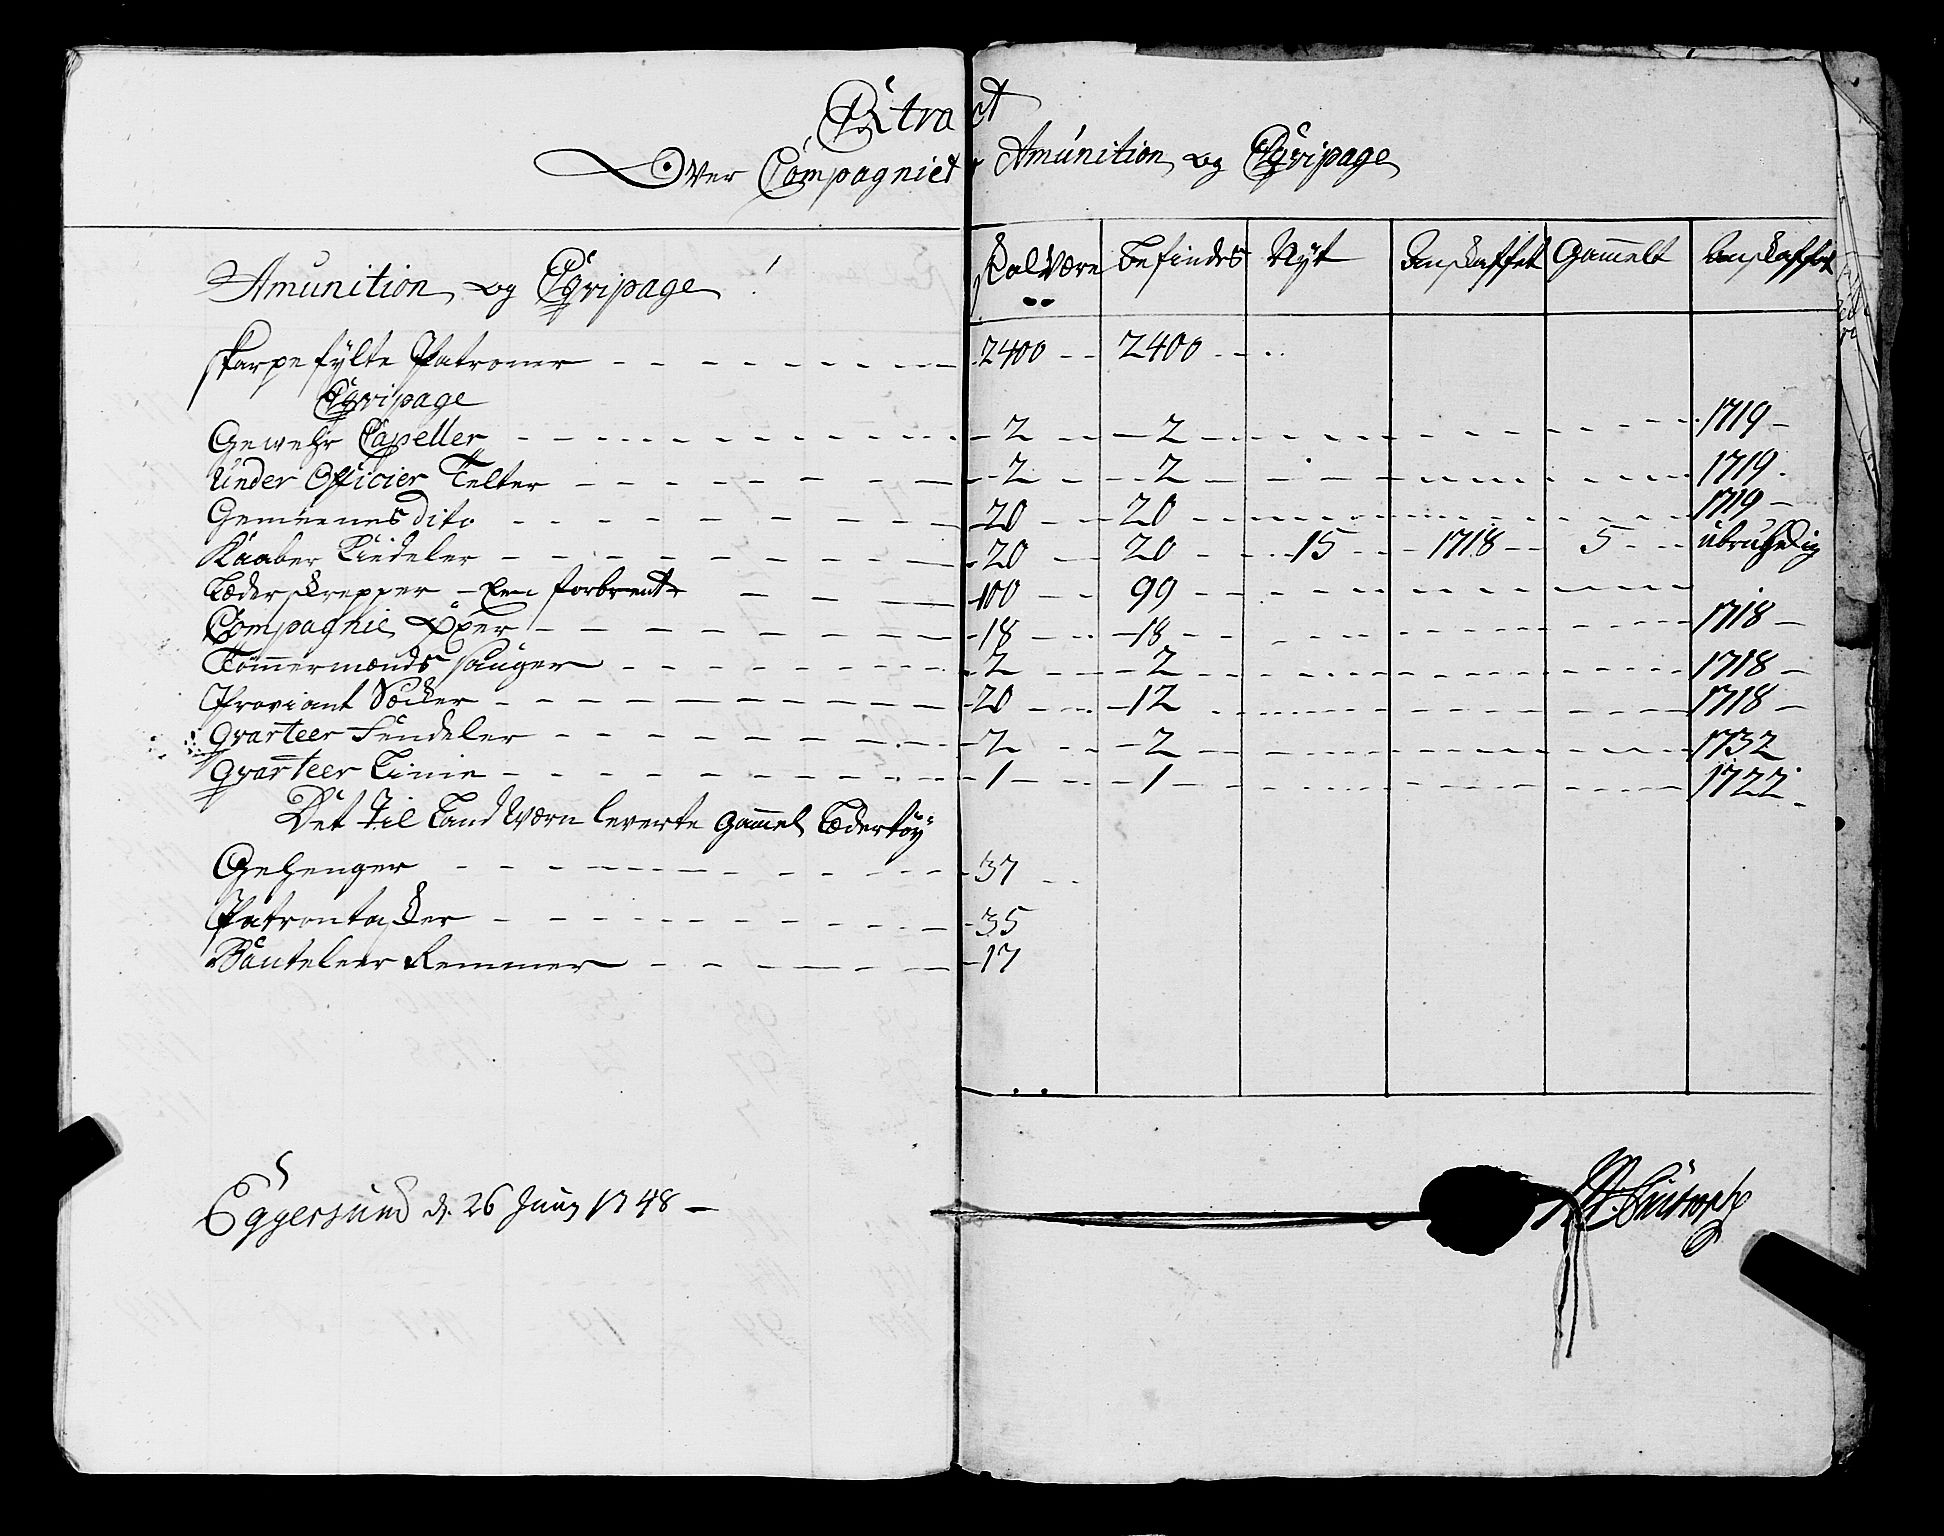 Extract
Over Compagniets Amunition og Eqvipage
Amunition og Eqvipage | skal være | befindes | Nÿt | anskaffet | Gam̄elt | anskaffet
skarpe fÿlte Patroner | 2400 | 2400
Eqvipage
Gewehr Capeller | 2 | 2 | 1719
Under Officier Telter | 2 | 2 | 1719
Gemeenes dito | 20 | 20 | 1719
Kaaber Kiedeler | 20 | 20 | 15 | 1718 | 5 | ubrugelig
Læder skrepper - Een forbrendt | 100 | 99
Compagnie Öxer | 18 | 18 | 1718
Tømmermænds sauger | 2 | 2 | 1718
Proviant Sæcker | 20 | 12 | 1718
Qvarteer Fendeler | 2 | 2 | 1732
Qvarteer Linie | 1 | 1 | 1722
Det til Land Værn leverte gam̄el Lædertøÿ
Gehenger | 37
Patrontasker | 35
Banteleer Remmer | 17
Eggersund d. 26 Junÿ 1748